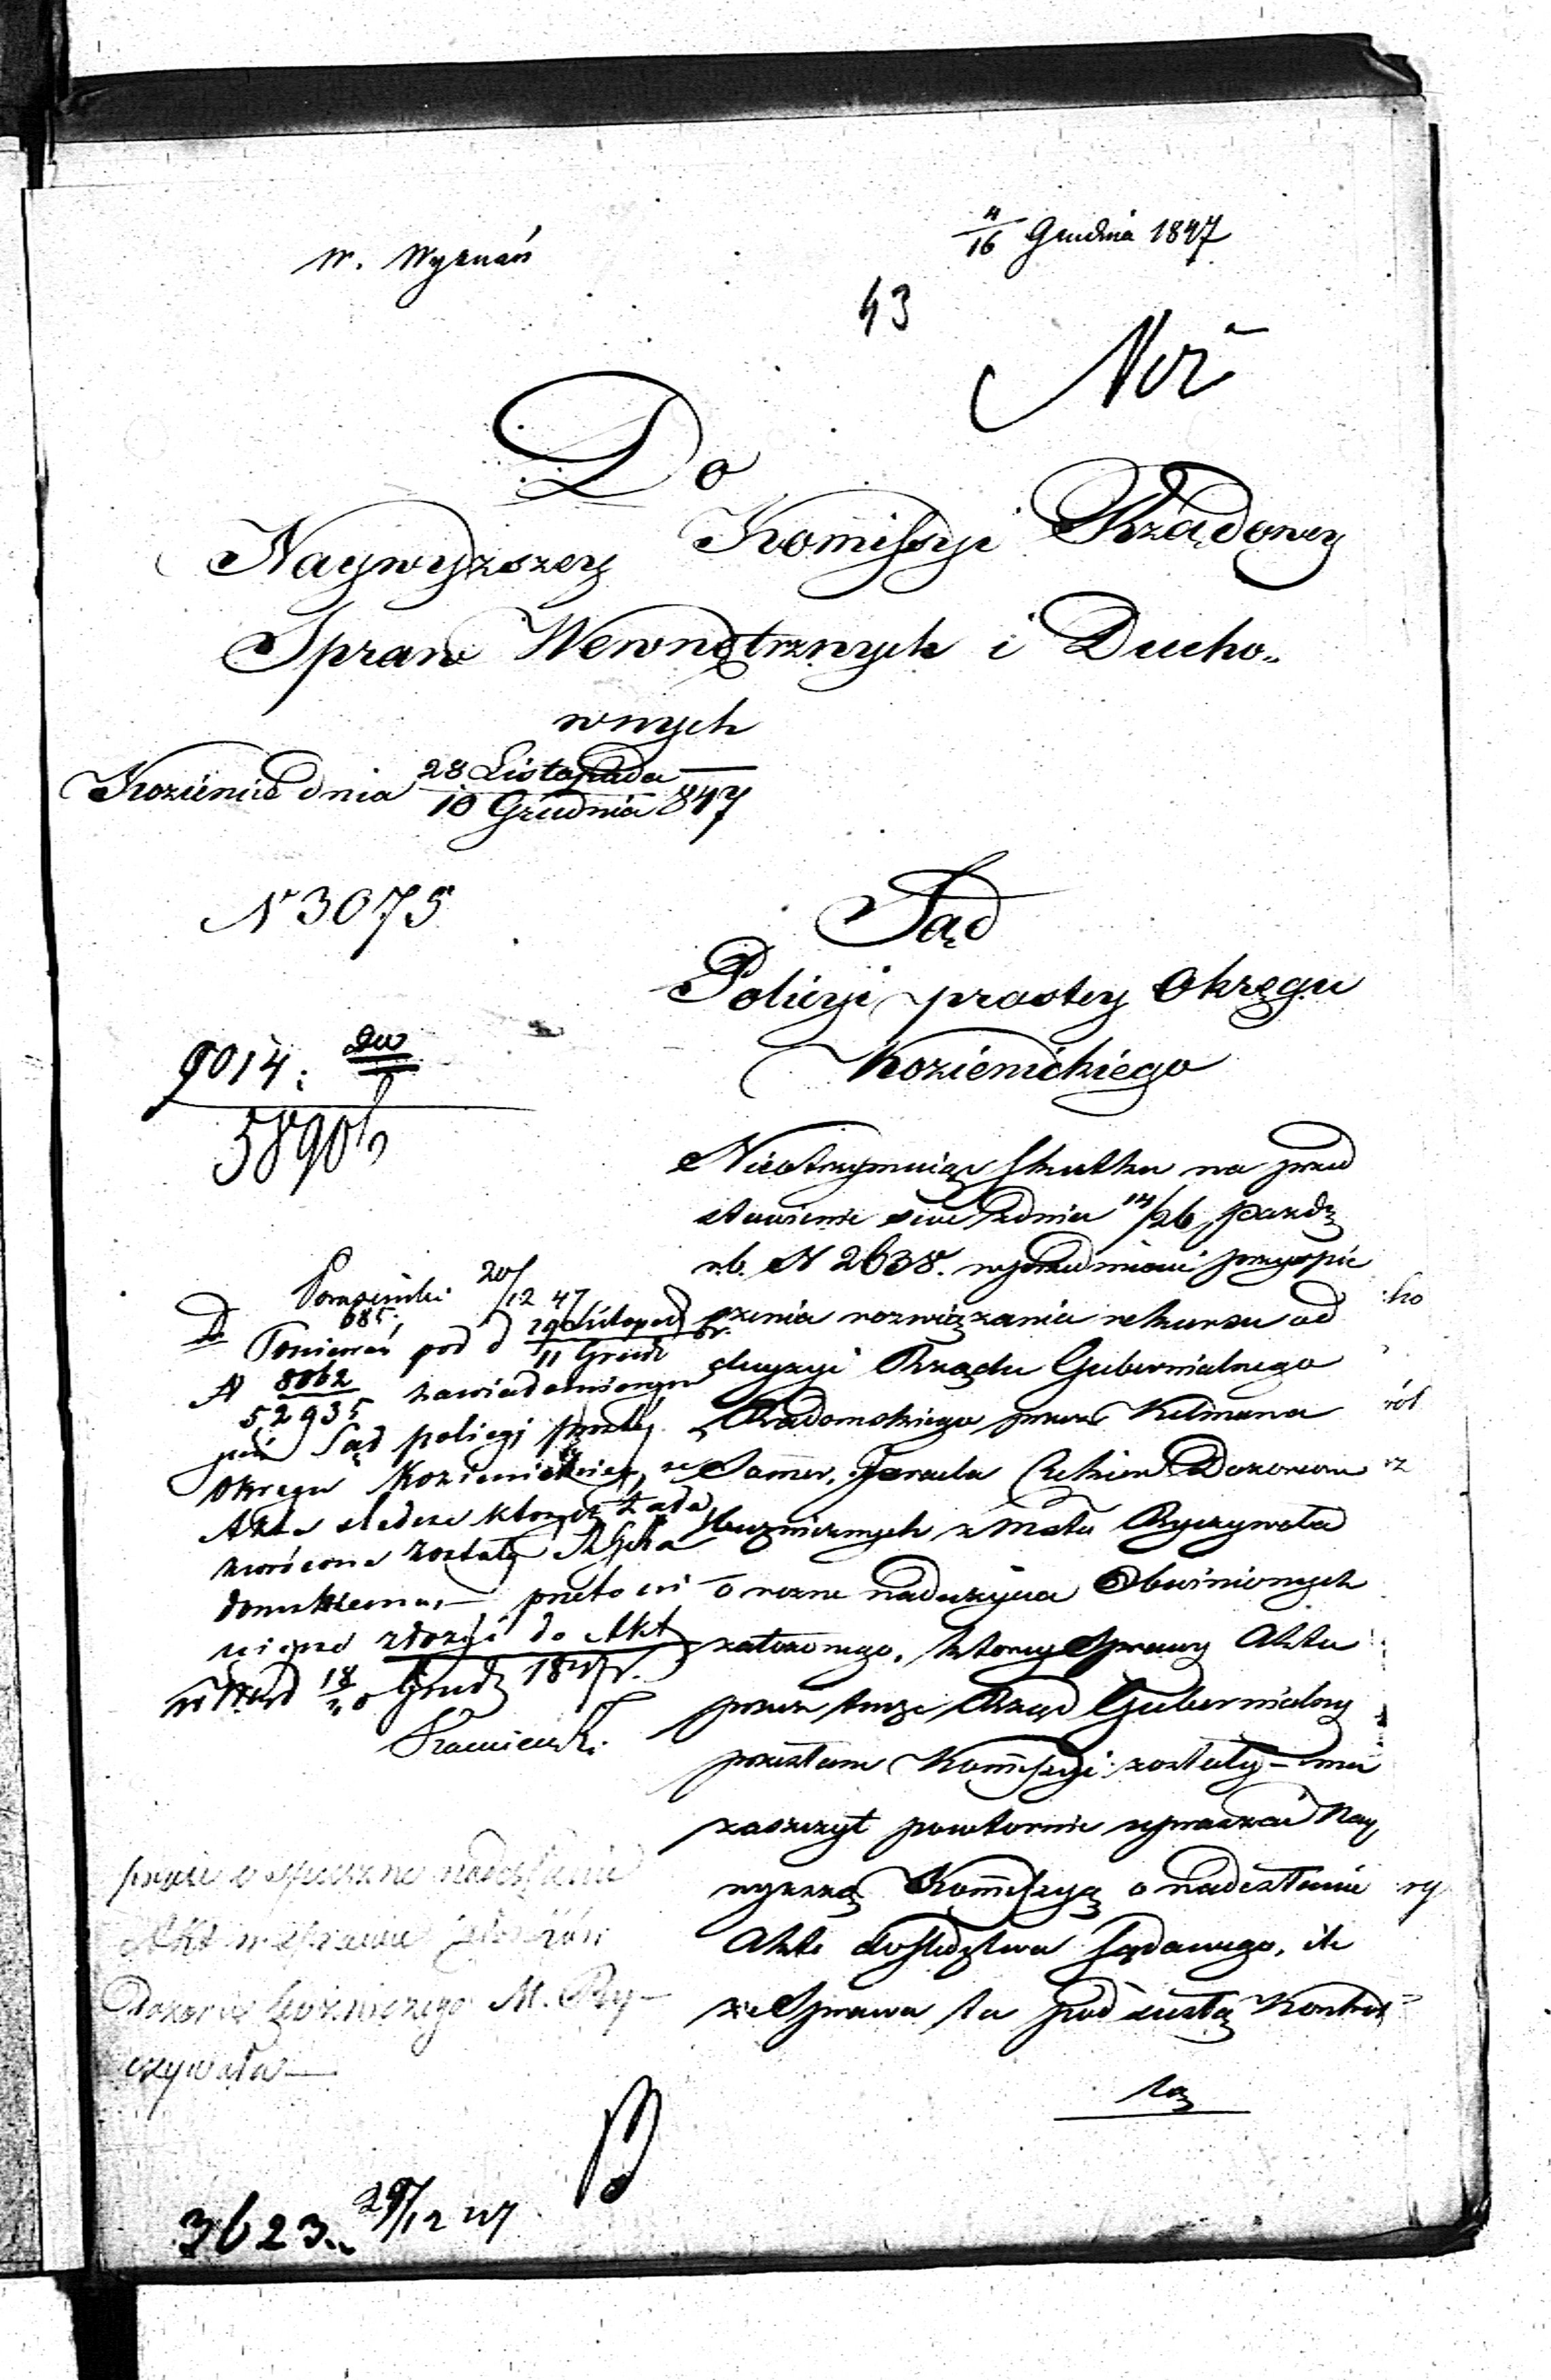 W. Wyznań
4/16 Grudnia 1847
43
Do
Naywyższey Kommissyi Rządowey
Spraw Wewnętrznych i Ducho„
wnych
Kozienice dnia 28 Listopada / 10 Grudnia 847
N 3075
Sąd
Policyi prostey Okręgu
Kozienickiego
9014:
58906
Nieotrzymuiąc skutku na przed
stawienie swe z dnia 14/26 Paźdz
r.b. N 2638. względnie przyspie
szenia rozwiązania rekursu od
decyzyi Rządu Gubernialnego
Radomskiego przez Kelmana
Israela Dozorców
Bużnicznych z Miasta Ryczywoła
o rozne nadużycia Obwinionych
założonego, ktorey Sprawy Akta
przez tenże Rząd Gubernialny
przesłane Kommissyi zostały – ma
zaszczyt powtornie upraszać Nay
wyższą Kommissyą o nadesłanie
Akt śledztwa sądowego, ile
że Sprawa ta pod ścisłą Kontrol
lą
20/12 47
685.
Ponieważ pod d 29 Listopad / 11 Grud r.b.
N 8062 / 52935 zawiadomiony
już Sąd policyi prostej
Okręgu Kozienickiego, że
Akta śledcze których żąda
zwrócone zostały Rządowi
przeto ni
niejsze złożyć do Akt
18/30 Grud 1847 r.
prosi o spieszne nadesłanie
Akt w sprawie
Dozoru Bożniczego M. Ry-
czywoła —
3623. 29/12 47